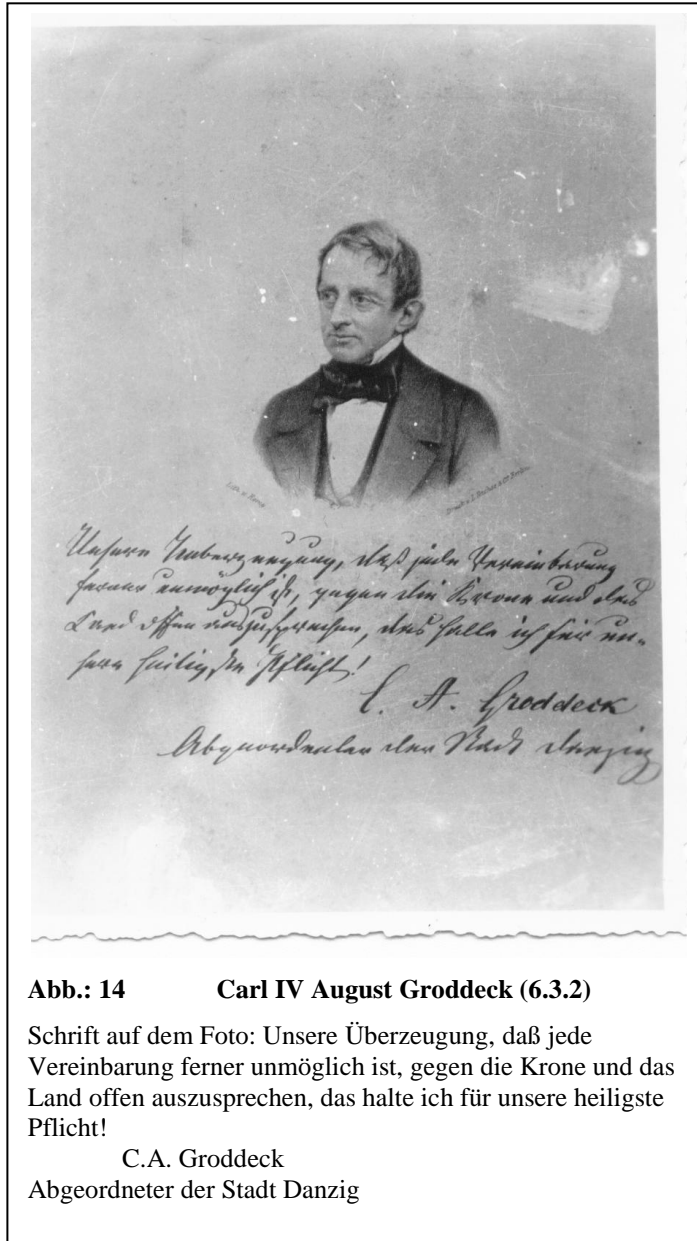 Unsere Ueberzeugung, daß jede Vereinbarung
ferner unmöglich ist, gegen die Krone und das
Land offen auszusprechen, das halte ich für un-
sere heiligste Pflicht!
C. A. Groddeck
Abgeordneter der Stadt Danzig
Abb.: 14 Carl IV August Groddeck (6.3.2)
Schrift auf dem Foto: Unsere Überzeugung, daß jede
Vereinbarung ferner unmöglich ist, gegen die Krone und das
Land offen auszusprechen, das halte ich für unsere heiligste
Pflicht!
C.A. Groddeck
Abgeordneter der Stadt Danzig